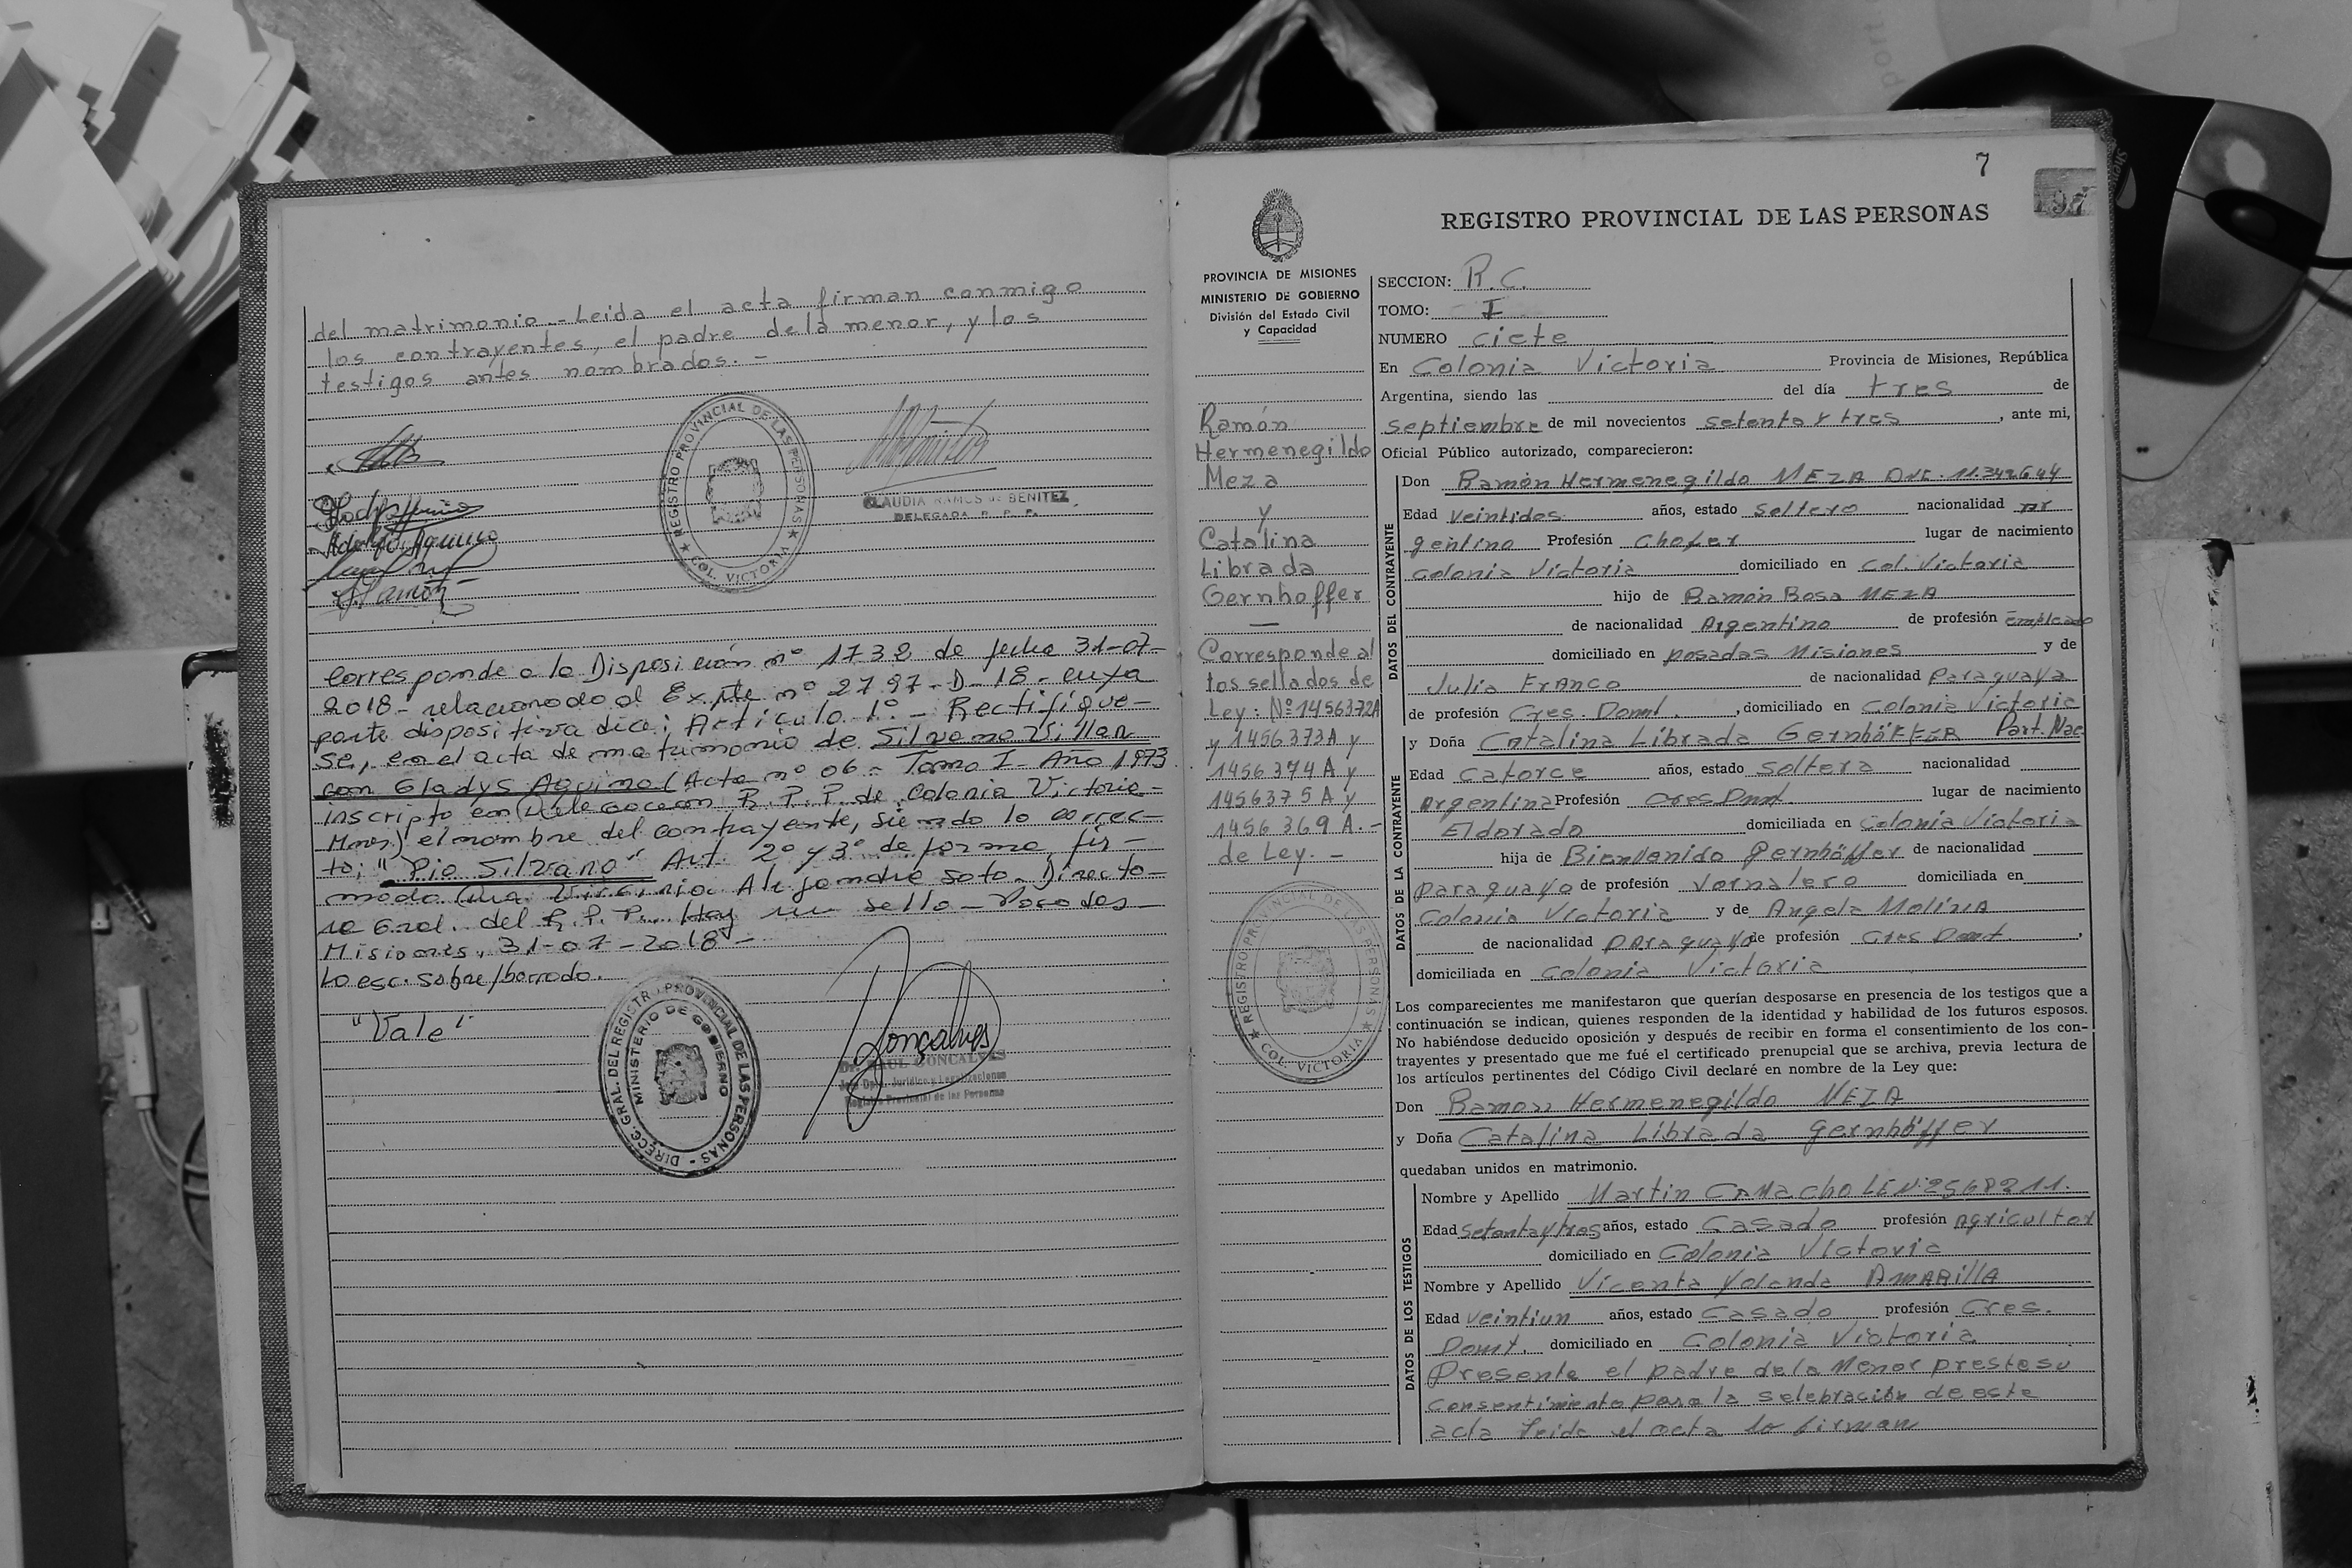 del matrimonio - Leida el acta firman conmigo
los contrayentes, el padre de la menor, y los
testigos antes nombrados. -
REGISTRO PROVINCIAL DE LAS PERSONAS
COL. VICTORIA
CLAUDIA RAMOS de BENITEZ
DELEGADA R. P. P.
Corresponde a la Disposición nº 1732 de fecha 31-07-
2018 - relacionado al Expte nº 2797-D-18 - cuya
parte dispositiva dice: Artículo 1º - Rectifique-
se, en el acta de matrimonio de Silvano Villan
con Gladys Aquino (Acta nº 06 - Tomo I - Año 1973
inscripto en Delegacion R. P. P. de Colonia Victoria -
Mnes.) el nombre del contrayente, siendo lo correc-
to; "Pio Silvano" Art. 2º y 3º de forma, fir-
mado Virginia Alejandra Soto - Directo-
ra Gral. del R. P. P. Hay un sello - Posadas -
Misiones, 31-07-2018 -
Lo esc. sobre/borrado.
"Vale"
DIRECC. GRAL. DEL REGISTRO PROVINCIAL DE LAS PERSONAS -
MINISTERIO DE GOBIERNO
Gonçalves
Dr. RAUL GONCALVES
Jefe Dpto. Jurídico y Legalizaciones
Registro Provincial de las Personas
7
197
REGISTRO PROVINCIAL DE LAS PERSONAS
PROVINCIA DE MISIONES
MINISTERIO DE GOBIERNO
División del Estado Civil
y Capacidad
Ramón
Hermenegildo
Meza
y
Catalina
Librada
Gernhoffer
Corresponde al
tos sellados de
Ley: Nº 1456372A
y 1456373A y
1456374A y
1456375A y
1456369A. -
de Ley. -
REGISTRO PROVINCIAL DE LAS PERSONAS
COL. VICTORIA
SECCION: R.C.
TOMO: I
NUMERO ciete
En Colonia Victoria Provincia de Misiones, República
Argentina, siendo las del día tres de
septiembre de mil novecientos setenta y tres, ante mi,
Oficial Público autorizado, comparecieron:
DATOS DEL CONTRAYENTE
Don Ramón Hermenegildo MEZA DNI. 11.342644
Edad veintidos años, estado soltero nacionalidad ar
gentino Profesión Chofer lugar de nacimiento
colonia Victoria domiciliado en Col. Victoria
hijo de Ramón Rosa MEZA
de nacionalidad Argentino de profesión empleado
domiciliado en posadas Misiones y de
Julia FrANCO de nacionalidad Paraguaya
de profesión Cres. Domt., domiciliado en Colonia Victoria
DATOS DE LA CONTRAYENTE
y Doña Catalina Librada GernhöFFER Part. Nac
Edad catorce años, estado soltera nacionalidad
Argentina Profesión Cres Dmt. lugar de nacimiento
Eldorado domiciliado en Colonia Victoria
hija de Bienvenido Gernhöffer de nacionalidad
paraguayo de profesión Jornalero domiciliada en
Colonia Victoria y de Angela MolinA
de nacionalidad paraguaya de profesión Cres Domt.,
domiciliada en colonia Victoria
Los comparecientes me manifestaron que querían desposarse en presencia de los testigos que a
continuación se indican, quienes responden de la identidad y habilidad de los futuros esposos.
No habiéndose deducido oposición y después de recibir en forma el consentimiento de los con-
trayentes y presentado que me fué el certificado prenupcial que se archiva, previa lectura de
los artículos pertinentes del Código Civil declaré en nombre de la Ley que:
Don Ramon Hermenegildo MEZA
y Doña Catalina Librada Gernhöffer
quedaban unidos en matrimonio.
DATOS DE LOS TESTIGOS
Nombre y Apellido Martin CAMAcho LE Nº 2568211.
Edad setenta y tres años, estado Casado profesión Agricultor
domiciliado en Colonia Victoria
Nombre y Apellido Vicenta Yolanda AMARillA
Edad veintiun años, estado Casado profesión Cres.
Domt. domiciliado en Colonia Victoria
Presente el padre de la Menor preste su
consentimiento para la selebración de este
acta Leida el acta lo firman